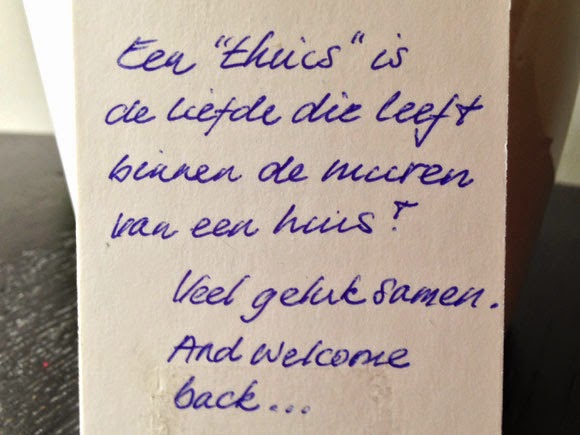 Een "thuis" is
de liefde die leeft
binnen de muren
van een huis!
Veel geluk samen.
And welcome
back...